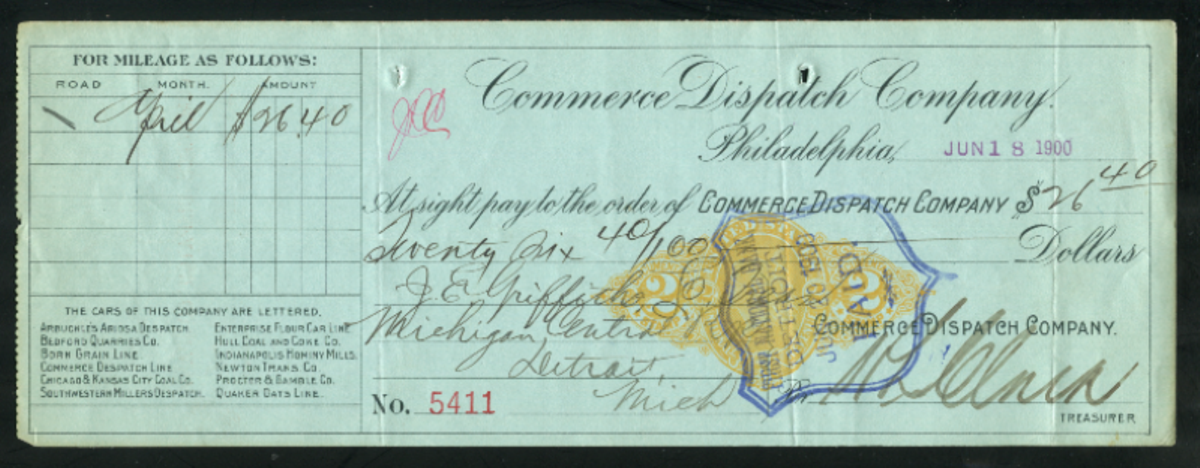 FOR MILEAGE AS FOLLOWS:
ROAD MONTH. AMOUNT
April $26.40
THE CARS OF THIS COMPANY ARE LETTERED.
ARBUCKLE'S ARIOSA DESPATCH.
BEDFORD QUARRIES CO.
BORN GRAIN LINE.
COMMERCE DESPATCH LINE
CHICAGO & KANSAS CITY COAL CO.
SOUTHWESTERN MILLERS DESPATCH.
ENTERPRISE FLOUR CAR LINE
HULL COAL AND COKE CO.
INDIANAPOLIS HOMINY MILLS.
NEWTON TRANS. CO.
PROCTER & GAMBLE CO.
QUAKER OATS LINE.
Commerce Dispatch Company.
Philadelphia, JUN 18 1900
At sight pay to the order of COMMERCE DISPATCH COMPANY $26 40
Twenty Six 40/100 Dollars
J. E. Griffiths,
Michigan Central
COMMERCE DISPATCH COMPANY.
Detroit,
Mich
No. 5411
TREASURER
2 2
PAID